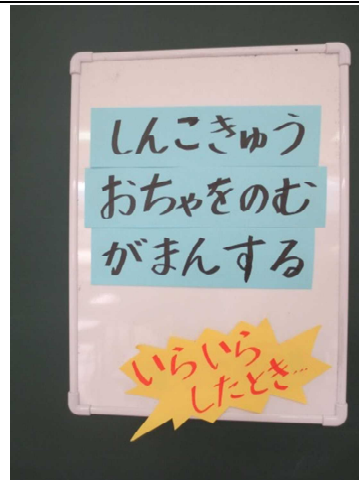 しんこきゅう
おちゃをのむ
がまんする
いらいら
したとき…